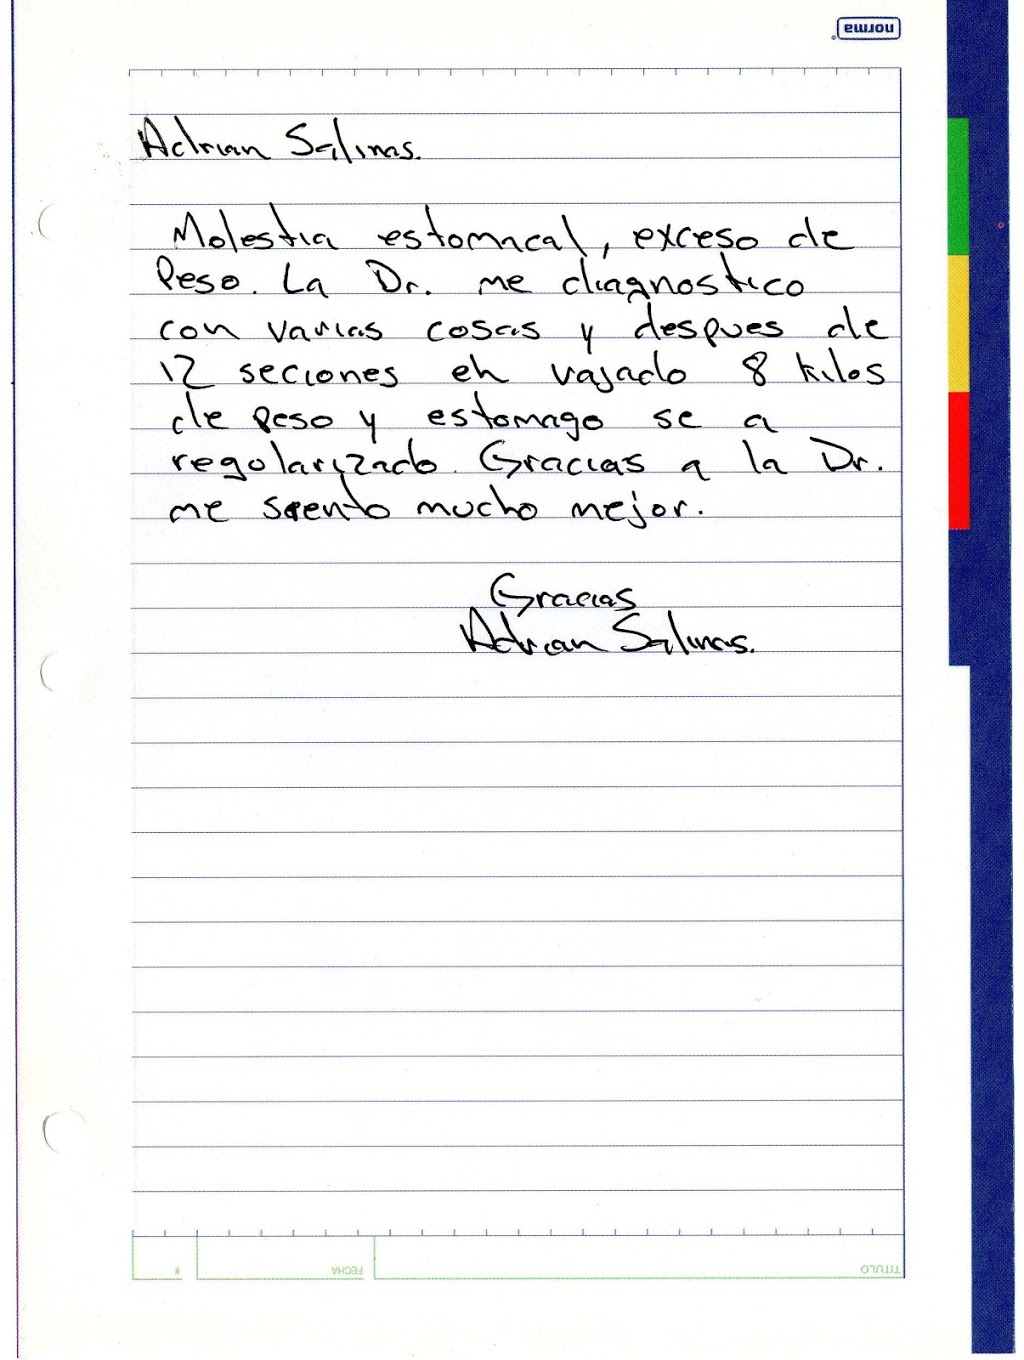 norma
Adrian Salinas.
Molestia estomacal, exceso de
Peso. La Dr. me diagnostico
con varias cosas y despues de
12 seciones eh vajado 8 kilos
de peso y estomago se a
regolarizado. Gracias a la Dr.
me siento mucho mejor.
Gracias
Adrian Salinas.
TITULO
FECHA
#